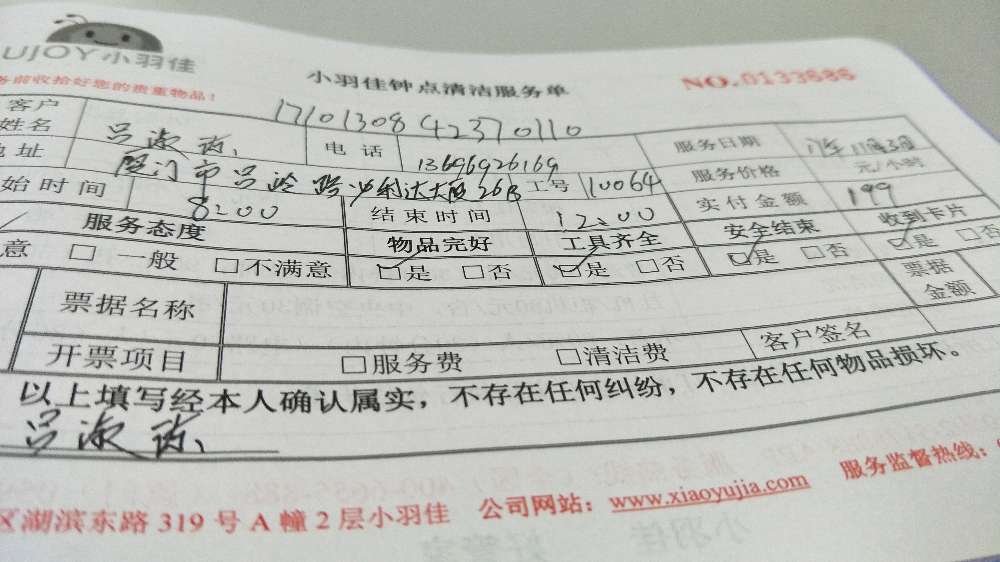 UJOY小羽佳
务前收拾好您的贵重物品!
小羽佳钟点清洁服务单
NO.0133686
1710130842370110
客户姓名 吕淑 电话 13696926169 服务日期
地址 厦门市吕岭路 利达大厦26B 工号 10064 服务价格 元/小时
始时间 8:00 结束时间 12:00 实付金额 199
服务态度 物品完好 工具齐全 安全结束 收到卡片
意 □一般 □不满意 ☑是 □否 ☑是 □否 ☑是 □否 ☑是 □否
票据名称 票据金额
开票项目 □服务费 □清洁费 客户签名
以上填写经本人确认属实，不存在任何纠纷，不存在任何物品损坏。
吕淑
区湖滨东路319号A幢2层小羽佳 公司网站：www.xiaoyujia.com 服务监督热线：